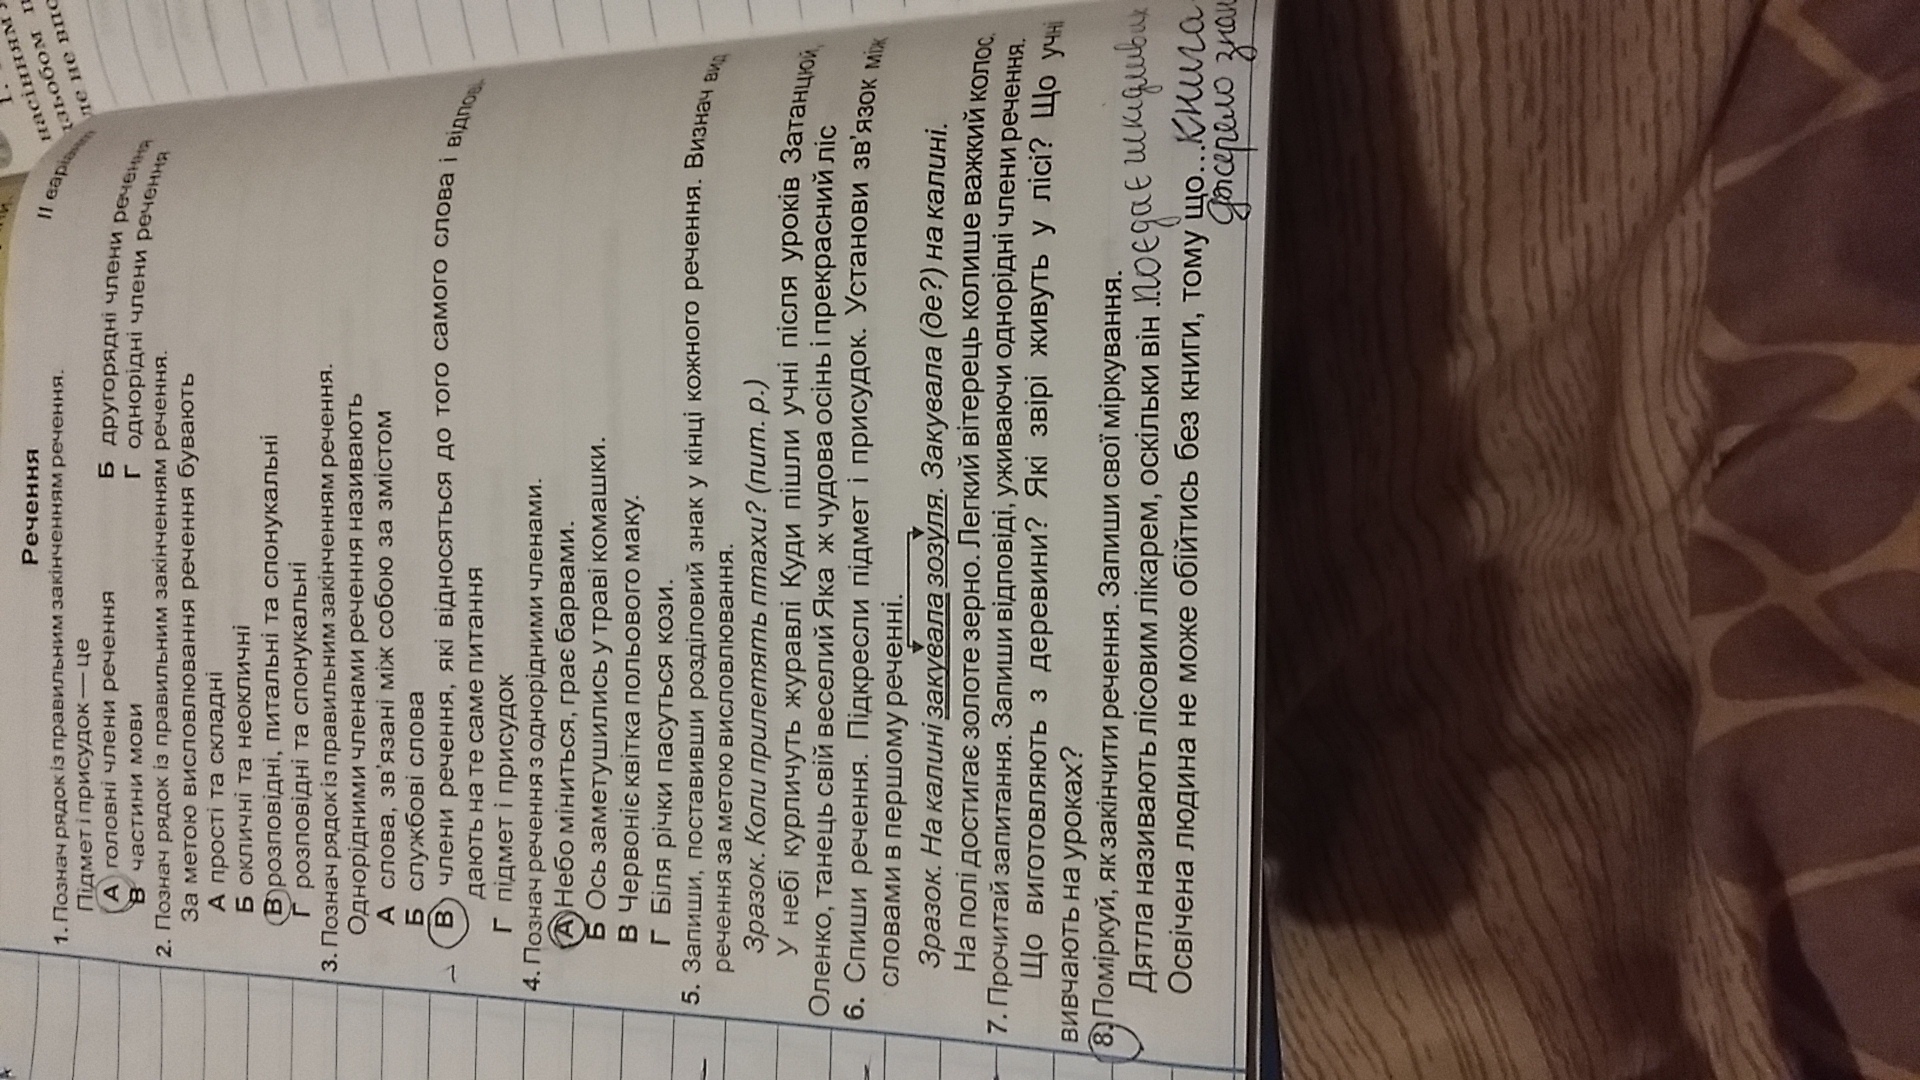 Речення
II варіант
1. Познач рядок із правильним закінченням речення.
Підмет і присудок — це
А головні члени речення Б другорядні члени речення
В частини мови Г однорідні члени речення
2. Познач рядок із правильним закінченням речення.
За метою висловлювання речення бувають
А прості та складні
Б окличні та неокличні
В розповідні, питальні та спонукальні
Г розповідні та спонукальні
3. Познач рядок із правильним закінченням речення.
Однорідними членами речення називають
А слова, зв'язані між собою за змістом
Б службові слова
В члени речення, які відносяться до того самого слова і відпов
дають на те саме питання
Г підмет і присудок
4. Познач речення з однорідними членами.
А Небо міниться, грає барвами.
Б Ось заметушились у траві комашки.
В Червоніє квітка польового маку.
Г Біля річки пасуться кози.
5. Запиши, поставивши розділовий знак у кінці кожного речення. Визнач вид
речення за метою висловлювання.
Зразок. Коли прилетять птахи? (пит. р.)
У небі курличуть журавлі Куди пішли учні після уроків Затанцюй,
Оленко, танець свій веселий Яка ж чудова осінь і прекрасний ліс
6. Спиши речення. Підкресли підмет і присудок. Установи зв'язок між
словами в першому реченні.
Зразок. На калині закувала зозуля. Закувала (де?) на калині.
На полі достигає золоте зерно. Легкий вітерець колише важкий колос.
7. Прочитай запитання. Запиши відповіді, уживаючи однорідні члени речення.
Що виготовляють з деревини? Які звірі живуть у лісі? Що учні
вивчають на уроках?
8. Поміркуй, як закінчити речення. Запиши свої міркування.
Дятла називають лісовим лікарем, оскільки він поєдає шкідливих
Освічена людина не може обійтись без книги, тому що... книга
джерело знань